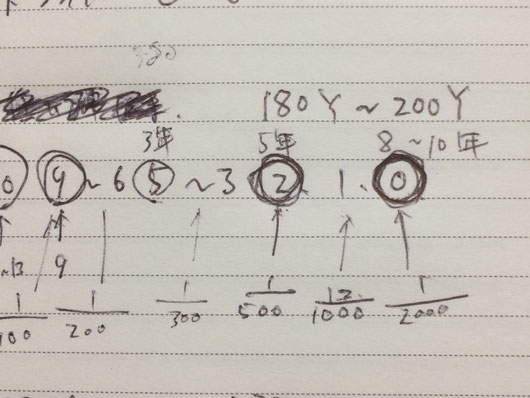 180Y~200Y
3年 5年 8~10年
0 9~6 5~3 2. 1. 0
~13 9
1/100 1/200 1/300 1/500 12/1000 1/2000